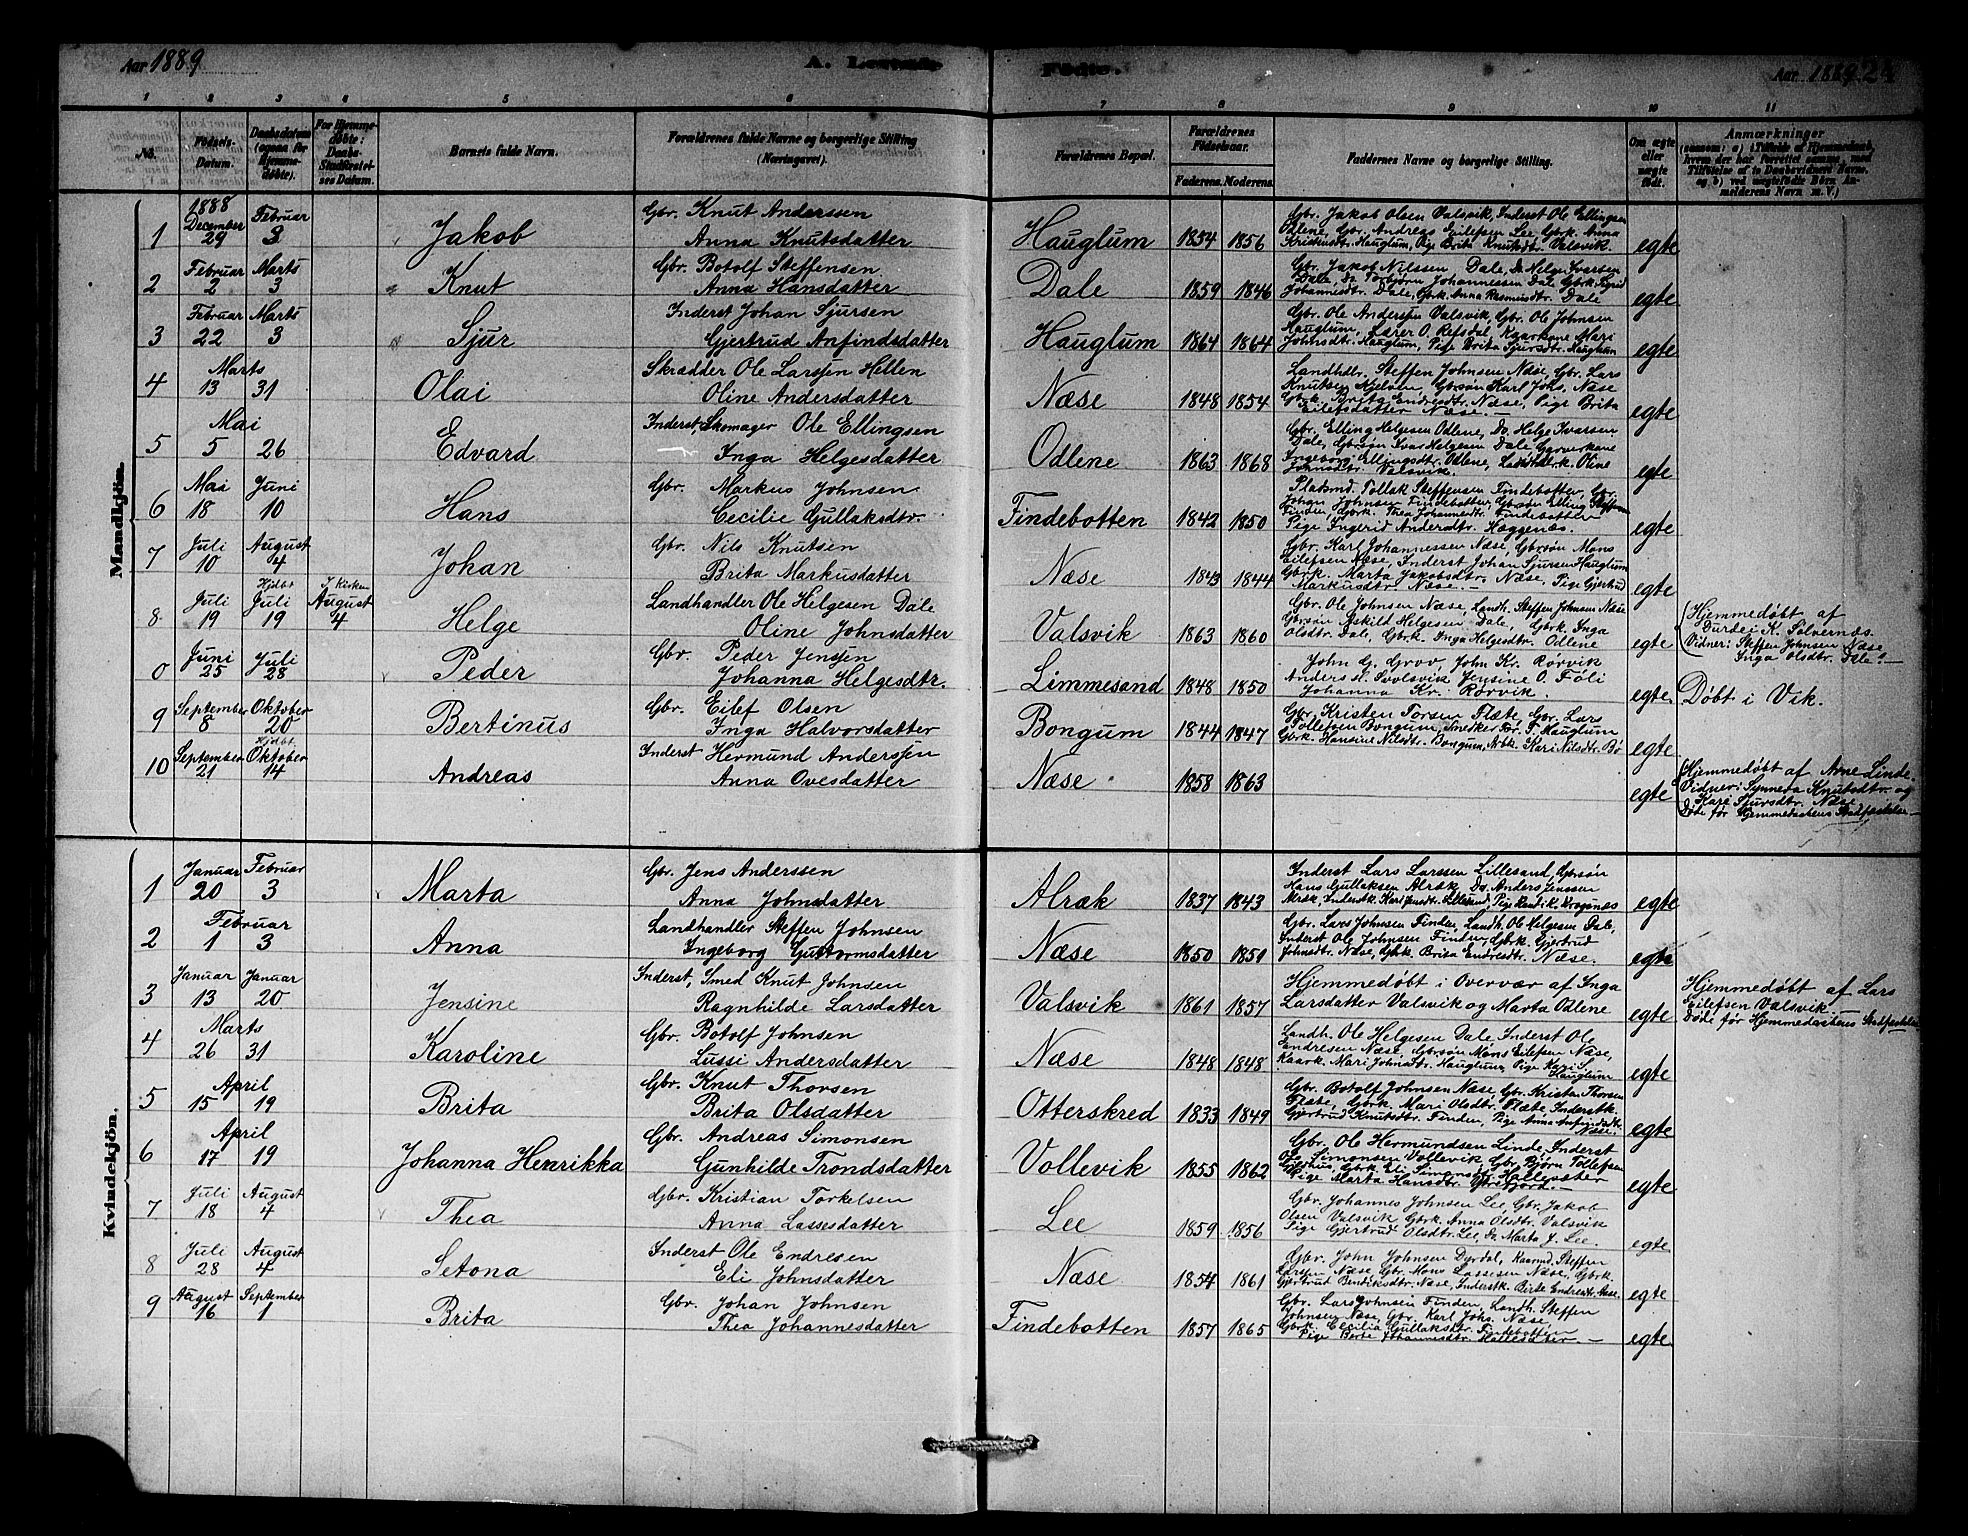 Aar 1889
A. Levende
Födte.
Aar 1889 24
1 2 3 4 5 6 7 8 9 10 11
No.
Födsels-Datum.
Daabsdatum (ogsaa for Hjemmedöbte).
For Hjemmedöbte: Daabs-Stadfæstelses Datum.
Barnets fulde Navn.
Forældrenes fulde Navne og borgerlige Stilling (Næringsvei).
Forældrenes Bopæl.
Forældrenes Födselsaar.
Faderens. Moderens.
Faddernes Navne og borgerlige Stilling.
Om ægte eller uægte födt.
Anmærkninger
Mandkjön.
1 1888 December 29 Februar 3 Jakob
Gbr. Knut Anderssen
Anna Knutsdatter
Hauglum 1854 1856
Gbr. Jakob Olsen Valsvik, Inderst Ole Ellingsen
Odlene, Gbr. Andreas Eilefsen Lee, Gbrk. Anna
Kristensdtr. Hauglum, Pige Brita Knutsdtr. Valsvik.
egte
2 Februar 2 Marts 3 Knut
Gbr. Botolf Steffensen
Anna Hansdatter
Dale 1859 1846
Gbr. Jakob Nilssen, Dale, Do. Helge Ivarsen
Dale, Do. Torbjørn Johannessen Dale, Gbrk. Sigrid
Johannesdtr. Dale, Gbrk. Anna Rasmusdtr. Dale
egte
3 Februar 22 Marts 3 Sjur
Inderst Johan Sjursen
Gjertrud Anfindsdatter
Hauglum 1864 1864
Gbr. Ole Anderssen Valsvik, Gbr. Ole Johnsen
Hauglum, Lærer O. Refsdal, Kaarkone Mari
Johnsdtr. Hauglum, Pige Brita Sjursdtr. Hauglum
egte
4 Marts 13 31 Olai
Skrædder Ole Larssen Hellen
Oline Andersdatter
Næse 1848 1854
Landhdlr. Steffen Johnsen Næse, Gbr. Lars
Knutsen Hjelven, Gbrsøn Karl Johs. Næse
Gbrk. Brita Endresdtr. Næse, Pige Brita
Eilefsdatter Næse. —
egte
5 Mai 5 26 Edvard
Inderst, Skomager Ole Ellingsen
Inga Helgesdatter
Odlene 1863 1868
Gbr. Elling Helgesen Odlene, Do. Helge Ivarsen
Dale, Gbrsøn Ivar Helgesen Dale,
Ingeborg Ellingsdtr. Odlene, Oline
Johnsdtr. Valsvik.
egte
6 Mai 18 Juni 10 Hans
Gbr. Markus Johnsen
Cecilie Gullaksdtr.
Findebotten 1842 1850
Pladsmd. Tollak Steffensen Findebotten, Gbr.
Johan Johnsen Findebotten, Gbrsøn Elling Steffensen
Finden, Gbrk. Thea Johannesdtr. Findebotten
Pige Ingerid Andersdtr. Hæggenæs.
egte
7 Juli 10 August 4 Johan
Gbr. Nils Knutsen
Brita Markusdatter
Næse 1843 1844
Gbr. Karl Johannessen Næse, Gbrsøn Mons
Eilefsen Næse, Inderst Johan Sjursen Hauglum
Gbrk. Marta Jakobsdtr. Næse, Pige Gjertrud
Markusdtr. Næse. —
egte
8 Juli 19 Hjdbt Juli 19 I Kirken August 4 Helge
Landhandler Ole Helgesen Dale
Oline Johnsdatter
Valsvik 1863 1860
Gbr. Ole Johnsen Næse, Landh. Steffen Johnsen Næse
Gbrsøn Askild Helgesen Dale, Gbrk. Inga
Olsdtr. Dale, Gbrk. Inga Helgesdtr. Odlene
egte
Hjemmedøbt af
Durdei K. Solvernæs.
Vidner: Steffen Johnsen Næse,
Inga Olsdtr. Dale. —
0 Juni 25 Juli 28 Peder
Gbr. Peder Jenssen
Johanna Helgesdtr.
Limmesand 1848 1850
John G. Grov, John Kr. Rørvik
Anders M. Svolsvik, Jensine O. Føli
Johanna Kr. Rørvik.
egte. Døbt i Vik.
9 September 8 Oktober 20 Bertinus
Gbr. Eilef Olsen
Inga Halvorsdatter
Bongum 1844 1847
Gbr. Kristen Torsen Flæte, Gbr. Lars
Tollefsen Bongum, Snedker F. Hauglum
Gbrk. Hansine Nilsdtr. Bongum, Kari Nilsdtr. Bø
egte
10 September 21 Hjdbt. Oktober 14 Andreas
Inderst Hermund Anderssen
Anna Ovesdatter
Næse 1858 1863
egte
Hjemmedøbt af Arne Linde.
Vidner: Synneva Knutsdtr. og
Kari Sjursdtr. Næse
Døde før Hjemmedaabens Stadfæstelse —
Kvindekjön.
1 Januar 20 Februar 3 Marta
Gbr. Jens Anderssen
Anna Johnsdatter
Alræk 1837 1843
Inderst Lars Larssen Lillesand, Gbrsøn
Hans Gullaksen Alræk, Do. Anders Jenssen
Alræk, Inderstk. Kari Jensdtr. Lillesand, Pige Kragenæs
egte
2 Februar 1 3 Anna
Landhandler Steffen Johnsen
Ingeborg Guttormsdatter
Næse 1850 1851
Gbr. Lars Johnsen Finden, Landh. Ole Helgesen Dale,
Inderst Ole Johnsen Finden, Gbrk. Gjertrud
Johnsdtr. Næse, Gbrk. Brita Endresdtr. Næse.
egte
3 Januar 13 Januar 20 Jensine
Inderst, Smed Knut Johnsen
Ragnhilde Larsdatter
Valsvik 1861 1857
Hjemmedøbt i Overvær af Inga
Larsdatter Valsvik og Marta Odlene
egte
Hjemmedøbt af Lars
Eilefsen Valsvik.
Døde før Hjemmedaabens Stadfæstelse
4 Marts 26 31 Karoline
Gbr. Botolf Johnsen
Lussi Andersdatter
Næse 1848 1848
Landh. Ole Helgesen Dale, Inderst Ole
Endresen Næse, Gbrsøn Mons Eilefsen Næse,
Kaark. Mari Johnsdtr. Hauglum, Pige Kari S.
Hauglum
egte
5 April 15 19 Brita
Gbr. Knut Thorsen
Brita Olsdatter
Otterskred 1833 1849
Gbr. Botolf Johnsen Næse, Gbr. Kristen Thorsen
Flæte, Gbrk. Mari Olsdtr. Flæte, Inderstk.
Gjertrud Knutsdtr. Finden, Pige Anna Anfindsdtr.
Næse.
egte
6 April 17 19 Johanna Henrikka
Gbr. Andreas Simonsen
Gunhilde Trondsdatter
Vollevik 1855 1862
Gbr. Ole Hermundsen Linde, Inderst
Ole Simonsen Vollevik, Gbr. Bjørn Tollefsen
Gbrk. Eli Simonsdtr. Hallesæter
Pige Marta Hansdtr.
egte
7 Juli 18 August 4 Thea
Gbr. Kristian Torkelsen
Anna Lassesdatter
Lee 1859 1856
Gbr. Johannes Johnsen Lee, Gbr. Jakob
Olsen Valsvik, Gbrk. Anna Olsdtr. Valsvik
Pige Gjertrud Olsdtr. Lee, Do. Marta J. Lee.
egte
8 Juli 28 August 4 Setona
Inderst Ole Endresen
Eli Johnsdatter
Næse 1854 1861
Gbr. John Johnsen Dyrdal, Kaarmd. Steffen
Larsen Næse, Gbr. Mons Lassesen Næse, Gbrk.
Gjertrud Bendiksdtr. Næse, Inderstk. Birte Endresdtr. Næse.
egte
9 August 16 September 1 Brita
Gbr. Johan Johnsen
Thea Johannesdatter
Findebotten 1857 1865
Gbr. Lars Johnsen Finden, Landh. Steffen
Johnsen Næse, Gbr. Karl Johs. Næse,
Gbrk. Cecilia Gullaksdtr. Findebotten
Pige Berte Johannesdtr. Hallesæter. —
egte